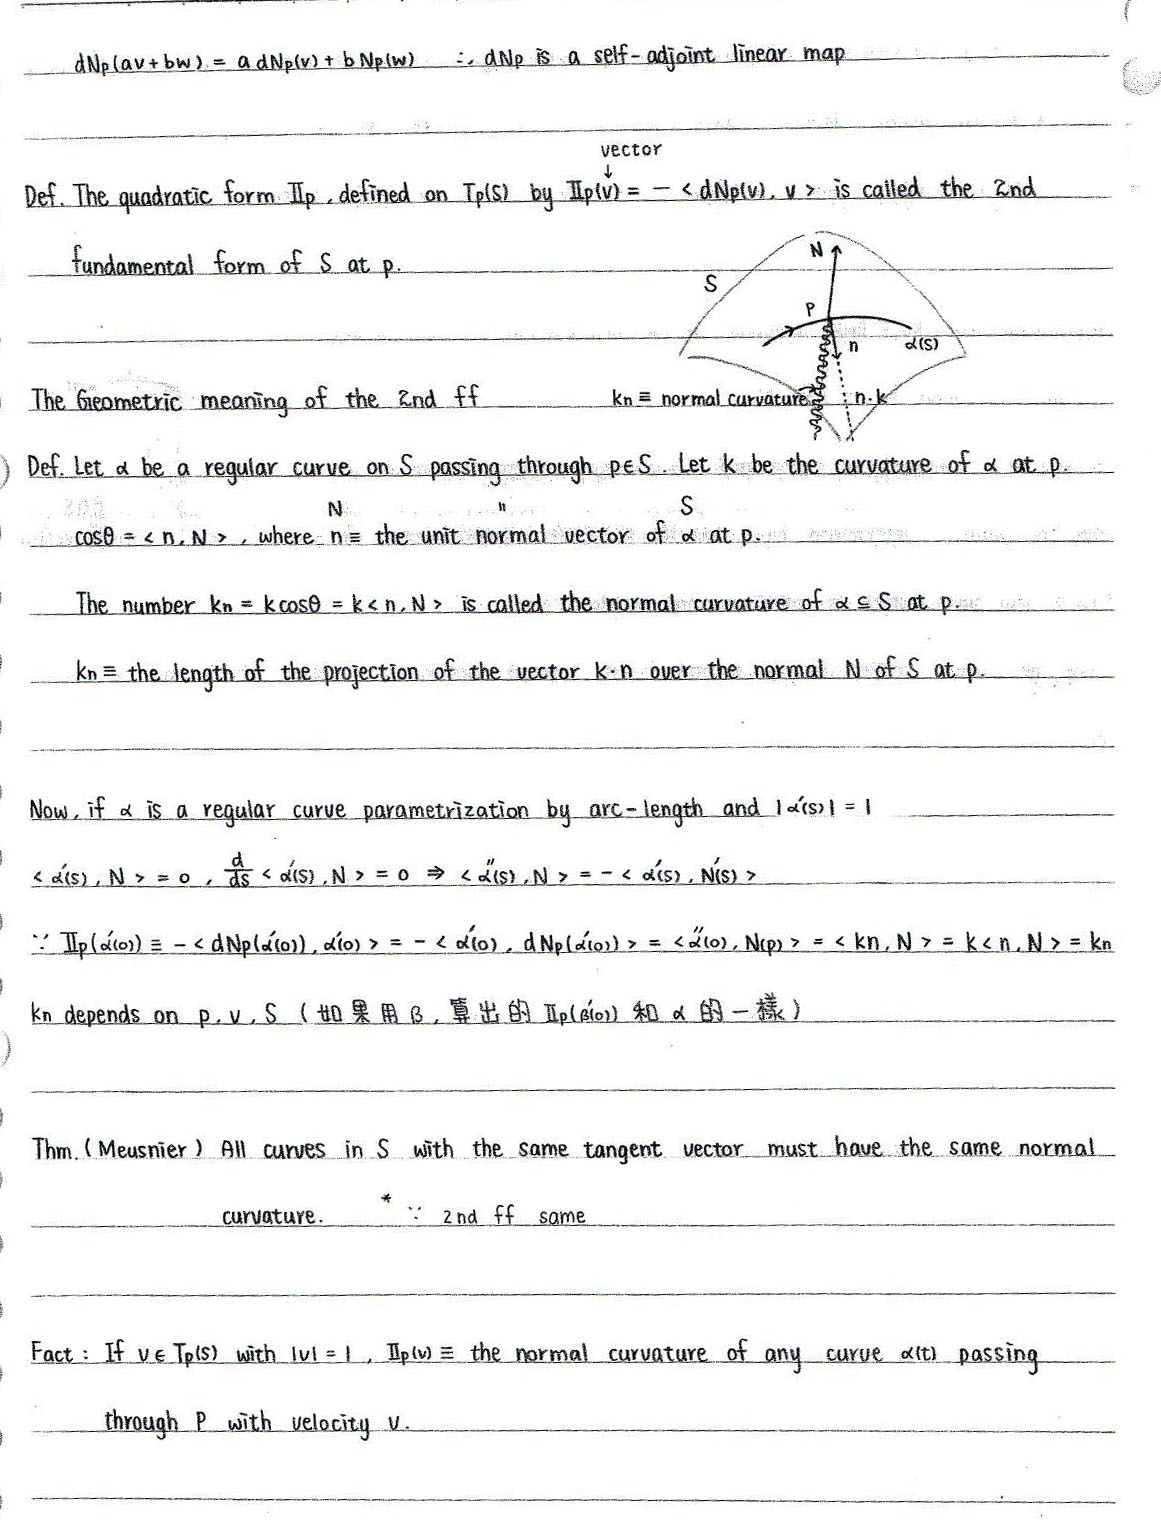 dNp(av+bw) = a dNp(v) + b Np(w) ∴ dNp is a self-adjoint linear map
vector
↓
Def. The quadratic form IIp, defined on Tp(S) by IIp(v) = - < dNp(v), v > is called the 2nd
fundamental form of S at p.
N
S
P
n
α(s)
The Geometric meaning of the 2nd ff
kn ≡ normal curvature
n·k
Def. Let α be a regular curve on S passing through p∈S. Let k be the curvature of α at p.
N " S
cosθ = < n, N >, where n ≡ the unit normal vector of α at p.
The number kn = kcosθ = k< n, N > is called the normal curvature of α ⊆ S at p.
kn ≡ the length of the projection of the vector k·n over the normal N of S at p.
Now, if α is a regular curve parametrization by arc-length and |α'(s)| = 1
< α'(s), N > = 0, d/ds < α'(s), N > = 0 ⇒ < α''(s), N > = - < α'(s), N'(s) >
∵ IIp(α'(0)) ≡ - < dNp(α'(0)), α'(0) > = - < α'(0), dNp(α'(0)) > = <α''(0), N(p) > = < kn, N > = k< n, N > = kn
kn depends on p, v, S (如果用 β, 算出的 IIp(β'(0)) 和 α 的一樣)
Thm. (Meusnier) All curves in S with the same tangent vector must have the same normal
curvature. * ∵ 2nd ff same
Fact : If v ∈ Tp(S) with |v| = 1, IIp(v) ≡ the normal curvature of any curve α(t) passing
through P with velocity v.